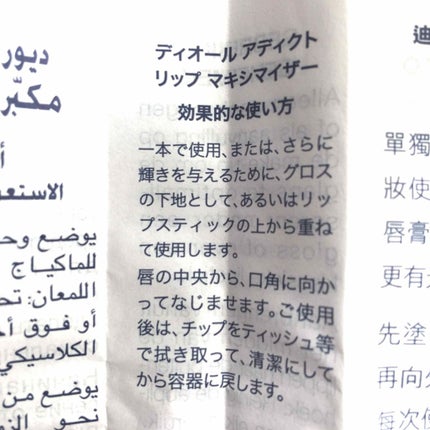 ديور
مكبّر
الاستعم
يوضع وحد
للماكياج
اللمعان: تح
أو فوق أح
الكلاسيكي
يوضع من
نحو الزو
ディオール アディクト
リップ マキシマイザー
効果的な使い方
一本で使用、または、さらに
輝きを与えるために、グロス
の下地として、あるいはリッ
プスティックの上から重ね
て使用します。
唇の中央から、口角に向か
ってなじませます。ご使用
後は、チップをティッシュ等
で拭き取って、清潔にして
から容器に戻します。
迪
單獨
妝使
唇膏
更有
先塗
再向
每次使